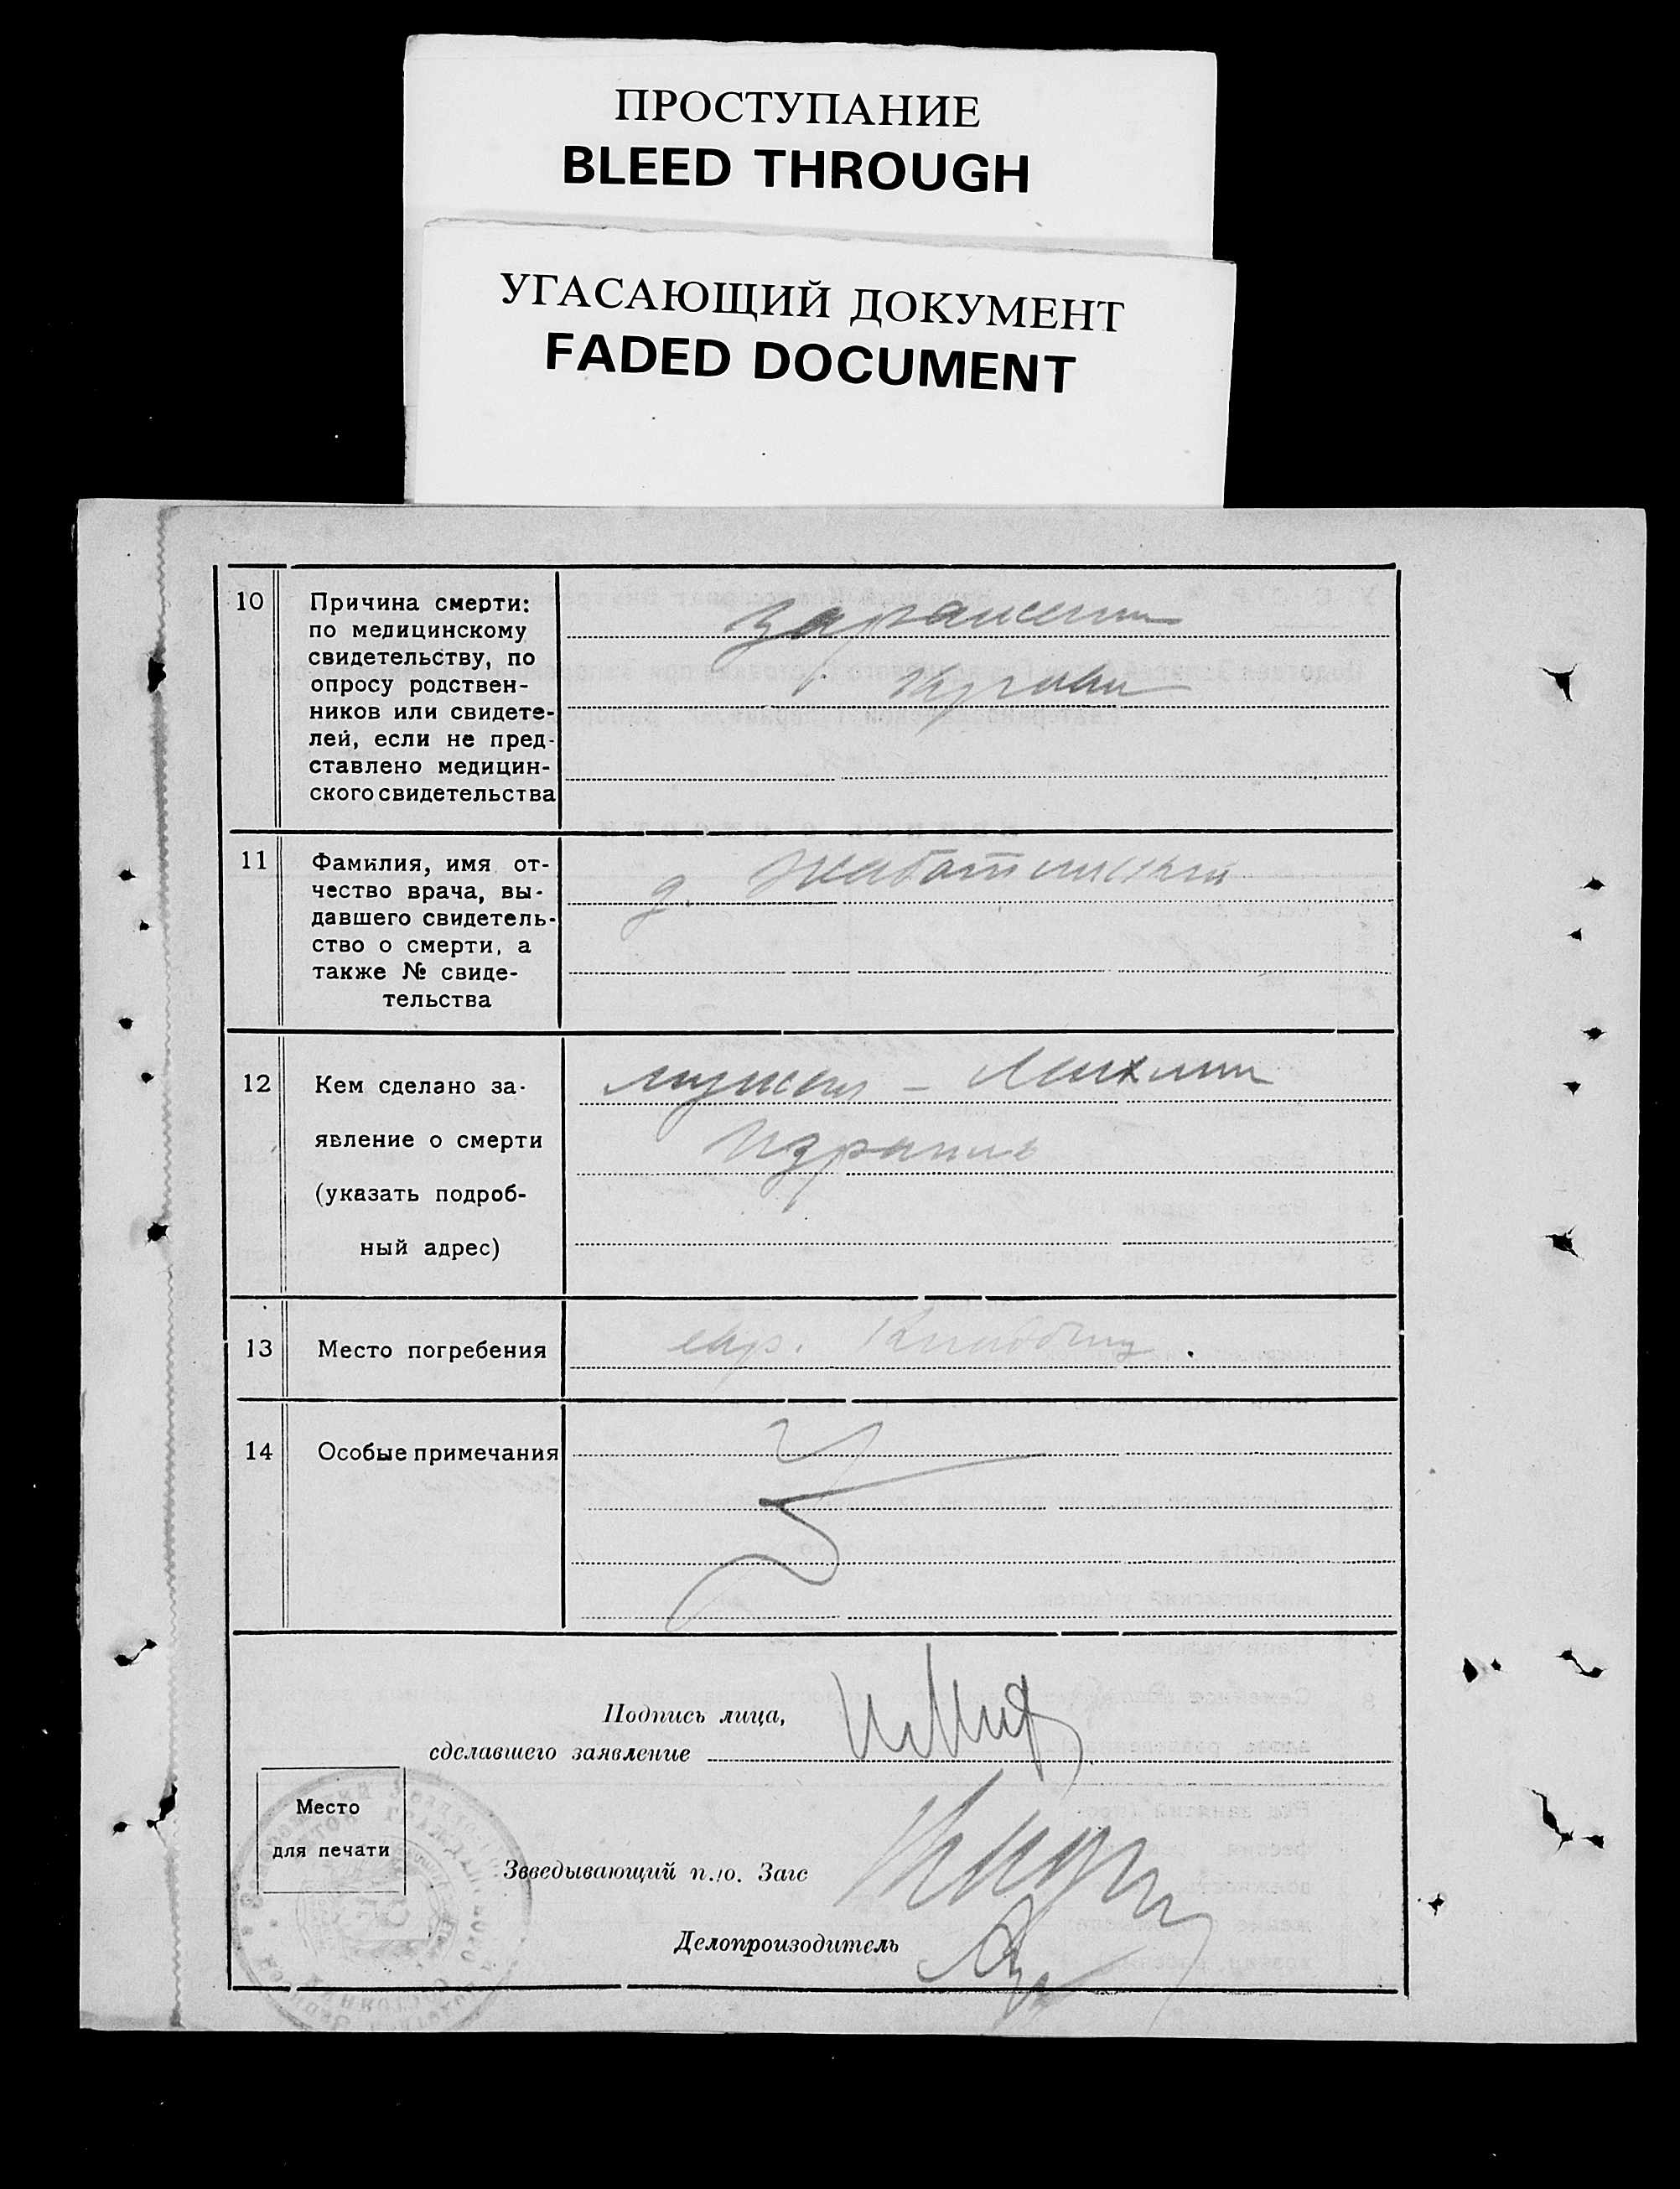 ПРОСТУПАНИЕ
BLEED THROUGH
УГАСАЮЩИЙ ДОКУМЕНТ
FADED DOCUMENT
10
Причина смерти:
по медицинскому
свидетельству, по
опросу родствен-
ников или свидете-
лей, если не пред-
ставлено медицин-
ского свидетельства
заражение
крови
11
Фамилия, имя от-
чество врача, вы-
давшего свидетель-
ство о смерти, а
также № свиде-
тельства
д. Жаботинский
12
Кем сделано за-
явление о смерти
(указать подроб-
ный адрес)
мужем –
Израиль
13
Место погребения
евр. Кладбищ.
14
Особые примечания
Подпись лица,
сделавшего заявление
Место
для печати
Зведывающий п./о. Загс
Делопроизводитель